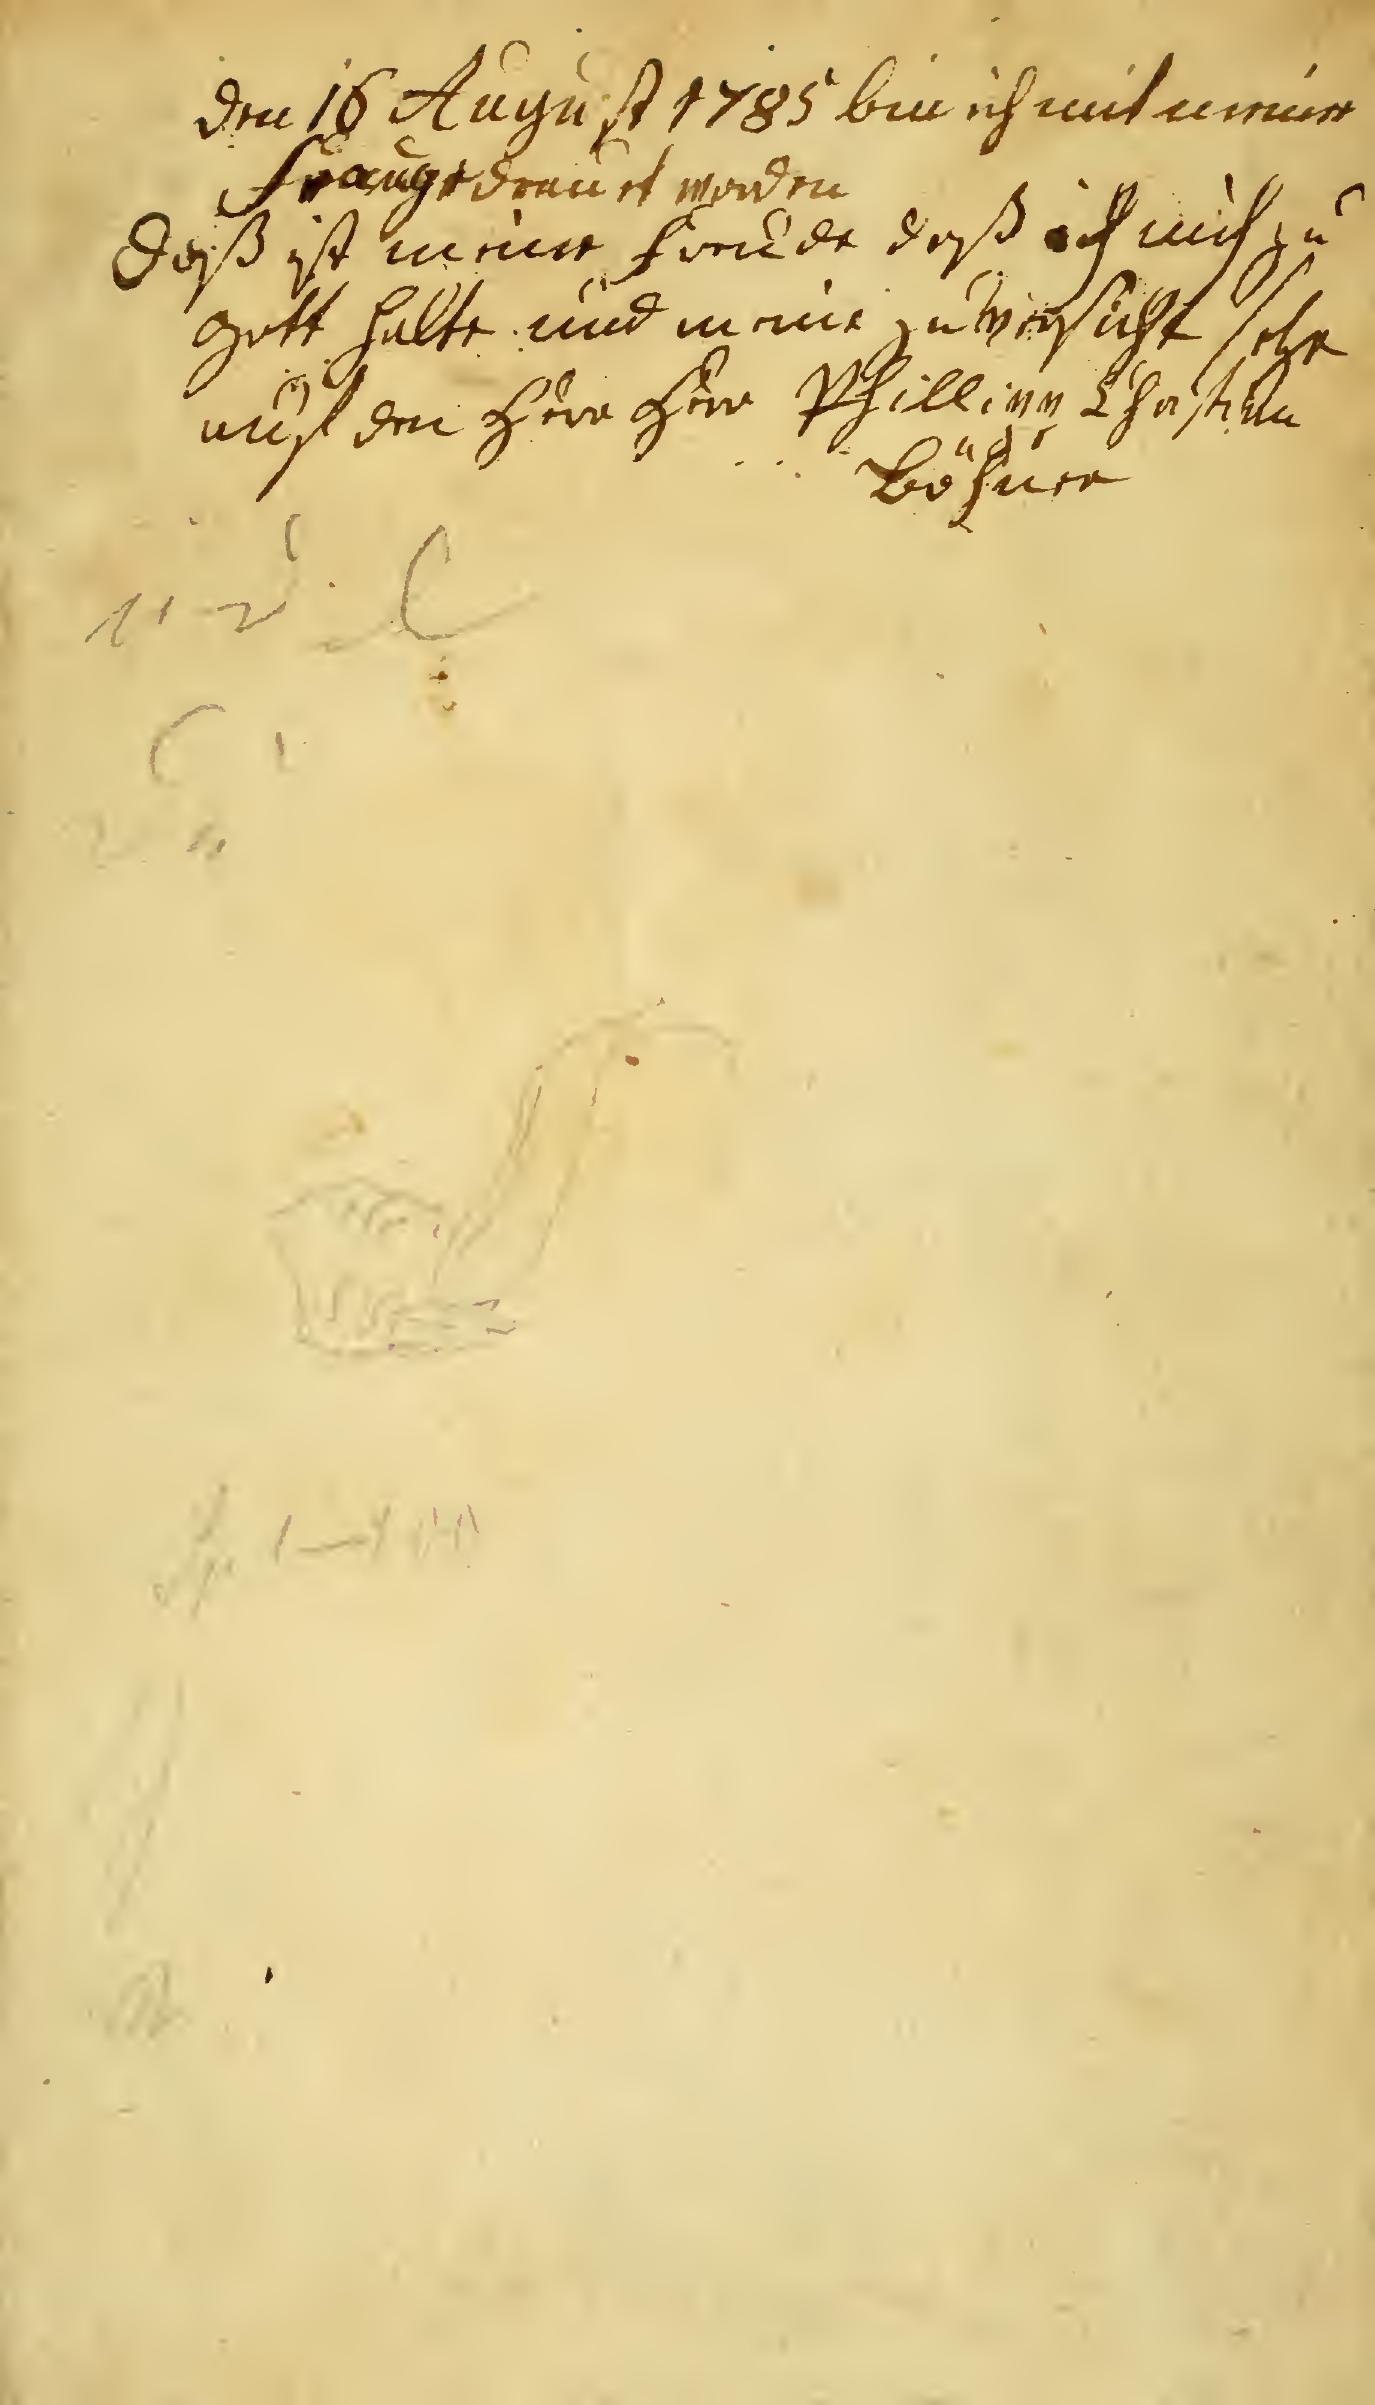 den 16 August 1785 bin ich mit meiner
Frau gedrauet worden
Daß ist meine Freude daß ich mich zu
gott halte und meine zuversicht setze
auf den Herr Herr Phillipp Christian
Böhner